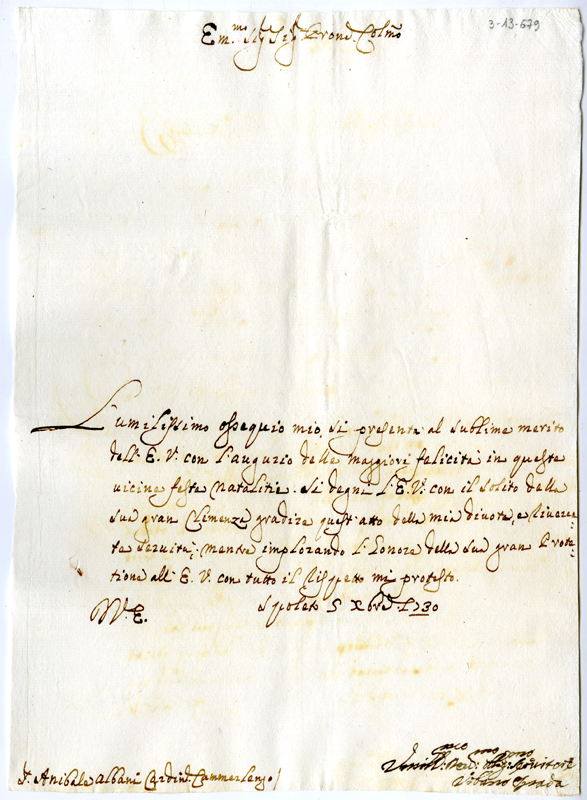 3-13-679
Em.mo Sig.r Sig.r Pron. Colmo
L'umilissimo ossequio mio si presenta al sublime merito
dell'E. V. con l'augurio delle maggiori felicità in queste
uicine feste Natalitie. Si degni l'E. V. con il solito della
sua gran Clemenza gradire quest'atto della mia diuota, e Riueren=
te seruitù; mentre implorando l'Honore della sua gran Prote=
tione all'E. V. con tutto il Rispetto mi protesto.
W. E. Spoleto 5 Xbre 1730
Umil.mo Deu.mo Obg. Seruitore
Urbano Spada
Anibale Albani Cardin. Cammerlengo